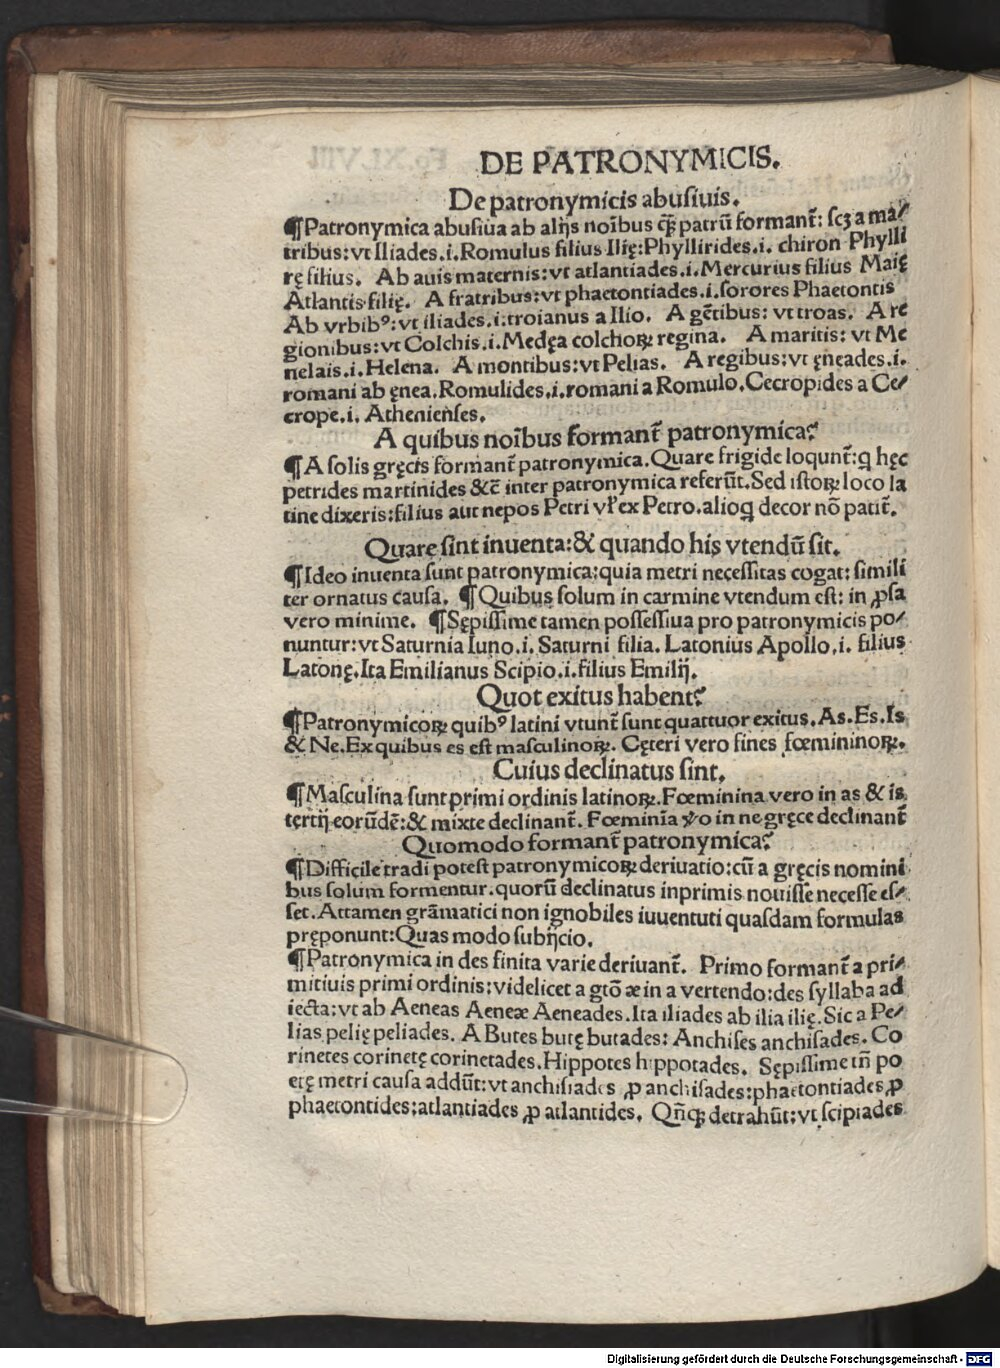 DE PATRONYMICIS.
De patronymicis abusiuis.
¶Patronymica abusiua ab alijs noībus q̄ꝫ patrū formant᷑: scꝫ a ma⸗
tribus:vt Iliades.i.Romulus filius Ilię:Phyllirides.i. chiron Phylli
rę filius. Ab auis maternis:vt atlantiades.i.Mercurius filius Maię
Atlantis filię. A fratribus:vt phaetontiades.i.sorores Phaetontis
Ab vrbibꝰ:vt iliades.i.troianus a Ilio. A gētibus: vt troas. A re
gionibus:vt Colchis.i.Medęa colchoꝝ regina. A maritis: vt Me
nelais.i.Helena. A montibus:vt Pelias. A regibus:vt ęneades.i.
romani ab ęnea.Romulides.i.romani a Romulo.Cecropides a Ce⸗
crope.i. Athenienses.
A quibus noībus formant᷑ patronymica?
¶A solis gręcis formant᷑ patronymica.Quare frigide loqunt᷑:q hęc
petrides martinides &c̄ inter patronymica referūt.Sed istoꝝ loco la
tine dixeris:filius aut nepos Petri vł ex Petro.alioq decor nō patit᷑.
Quare sint inuenta:& quando his vtendū sit.
¶Ideo inuenta sunt patronymica:quia metri necessitas cogat: simili
ter ornatus causa. ¶Quibus solum in carmine vtendum est: in ꝓsa
vero minime. ¶Sępissime tamen possessiua pro patronymicis po⸗
nuntur:vt Saturnia Iuno.i. Saturni filia. Latonius Apollo.i. filius
Latonę.Ita Emilianus Scipio.i.filius Emilij.
Quot exitus habent?
¶Patronymicoꝝ quibꝰ latini vtunt᷑ sunt quattuor exitus.As.Es.Is
& Ne.Ex quibus es est masculinoꝝ. Cęteri vero fines fœmininoꝝ.
Cuius declinatus sint.
¶Masculina sunt primi ordinis latinoꝝ.Fœminina vero in as & is
tertij eorūdē:& mixte declinant᷑. Fœminīa ꝟo in ne gręce declinant᷑
Quomodo formant᷑ patronymica?
¶Difficile tradi potest patronymicoꝝ deriuatio:cū a gręcis nomini
bus solum formentur.quorū declinatus inprimis nouisse necesse es⸗
set.Attamen grāmatici non ignobiles iuuentuti quasdam formulas
pręponunt:Quas modo subijcio.
¶Patronymica in des finita varie deriuant᷑. Primo formant᷑ a pri⸗
mitiuis primi ordinis:videlicet a gtō æ in a vertendo:des syllaba ad
iecta:vt ab Aeneas Aeneæ Aeneades.Ita iliades ab ilia ilię.Sic a Pe⸗
lias pelię peliades. A Butes butę butades: Anchises anchisades. Co
rinetes corinetę corinetades.Hippotes hippotades. Sępissime tn̄ po
etę metri causa addūt:vt anchisiades ꝓ anchisades:phaetontiades ꝓ
phaetontides:atlantiades ꝓ atlantides. Qn̄qꝫ detrahūt:vt scipiades
Digitalisierung gefördert durch die Deutsche Forschungsgemeinschaft - DFG